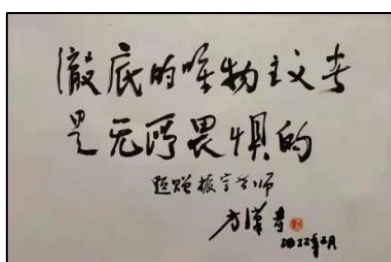 徹底的唯物主义者
是无所畏惧的
题赠振宇老师
方汉奇
2022年2月